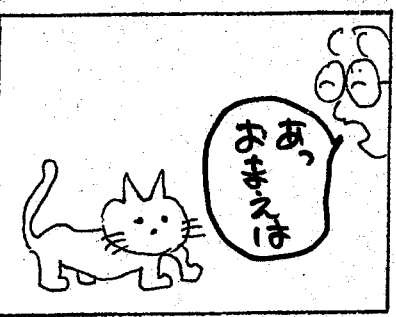 あっ
おまえは